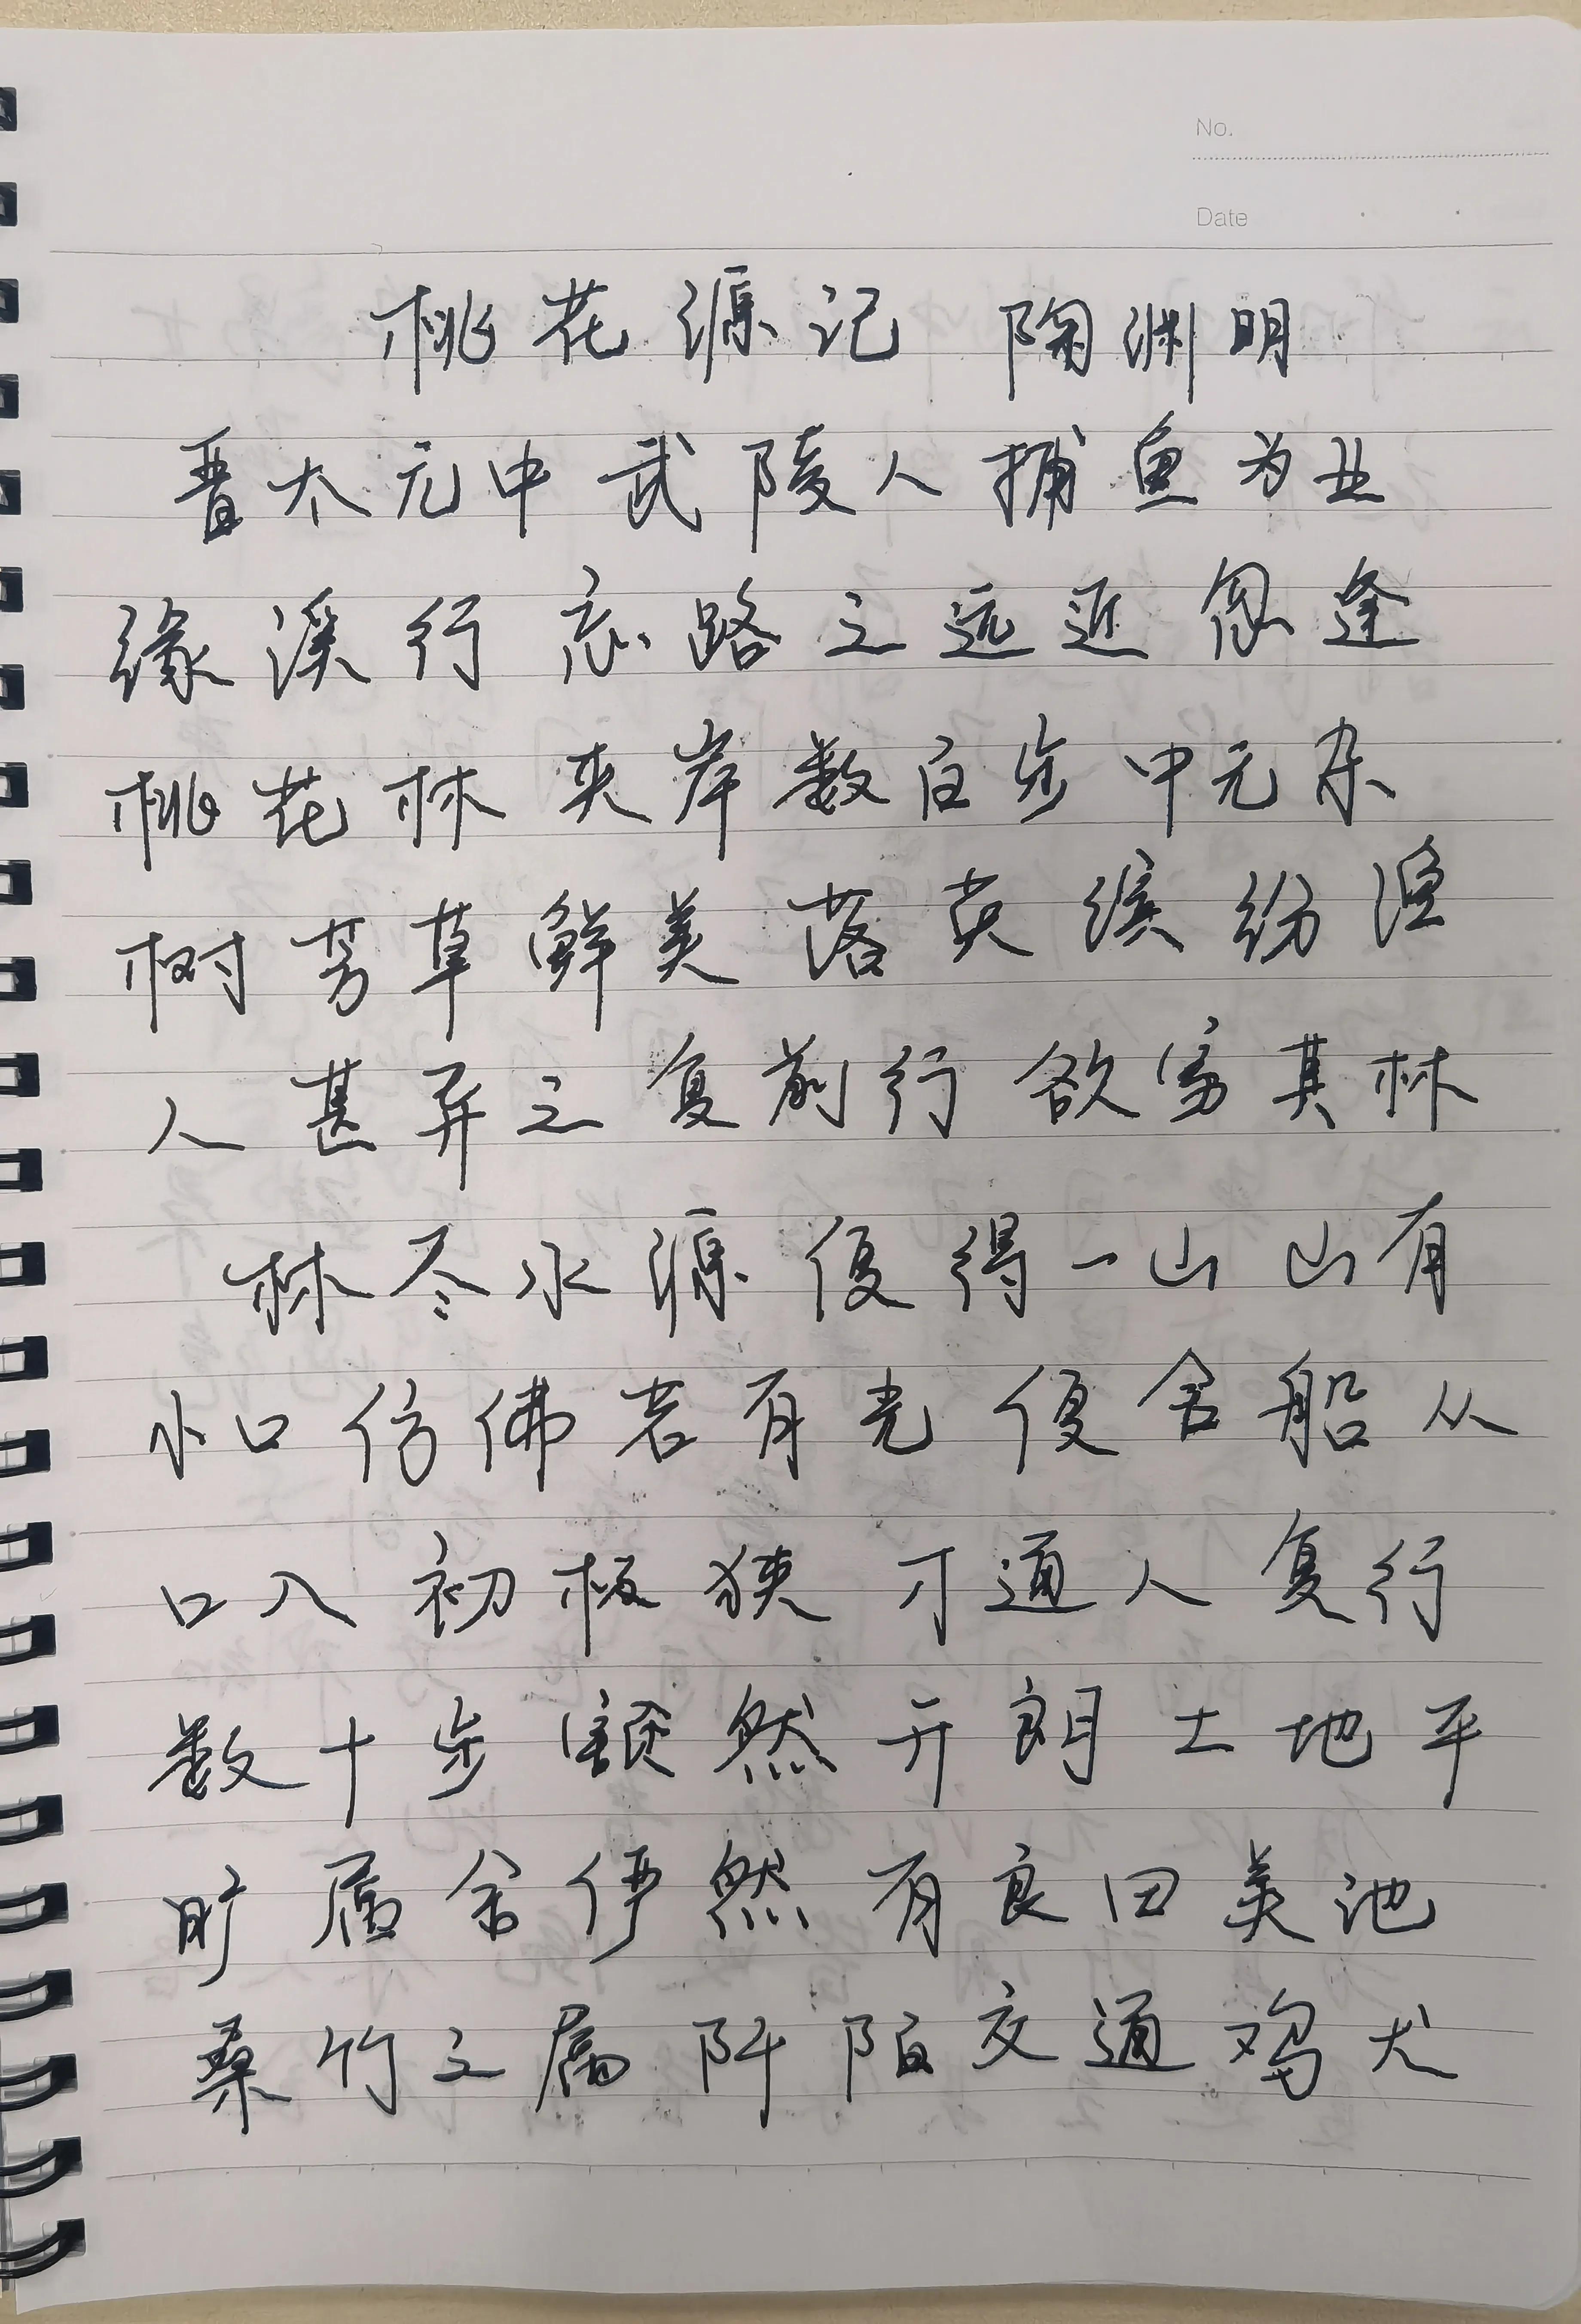 No.
Date
桃花源记 陶渊明
晋太元中武陵人捕鱼为业
缘溪行忘路之远近忽逢
桃花林夹岸数百步中无杂
树芳草鲜美落英缤纷渔
人甚异之复前行欲穷其林
林尽水源便得一山山有
小口仿佛若有光便舍船从
口入初极狭才通人复行
数十步豁然开朗土地平
旷屋舍俨然有良田美池
桑竹之属阡陌交通鸡犬